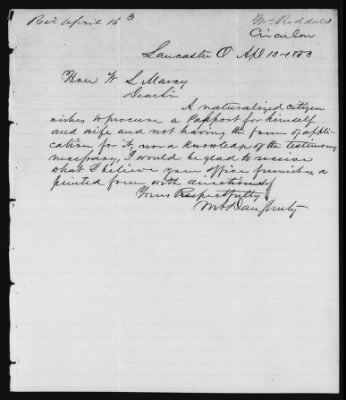 Rec April 15
Mr Reddall
Circular
Lancaster O Apl 13 1853
Hon W L Marcy
Dear Sir
A naturalized citizen
wishes to procure a Passport for himself
and wife and not having the form of appli-
cation for it, nor a Knowledge of the testimony
necessary, I would be glad to receive
what I believe your office furnishes, a
printed form with directions
Yours Respectfully